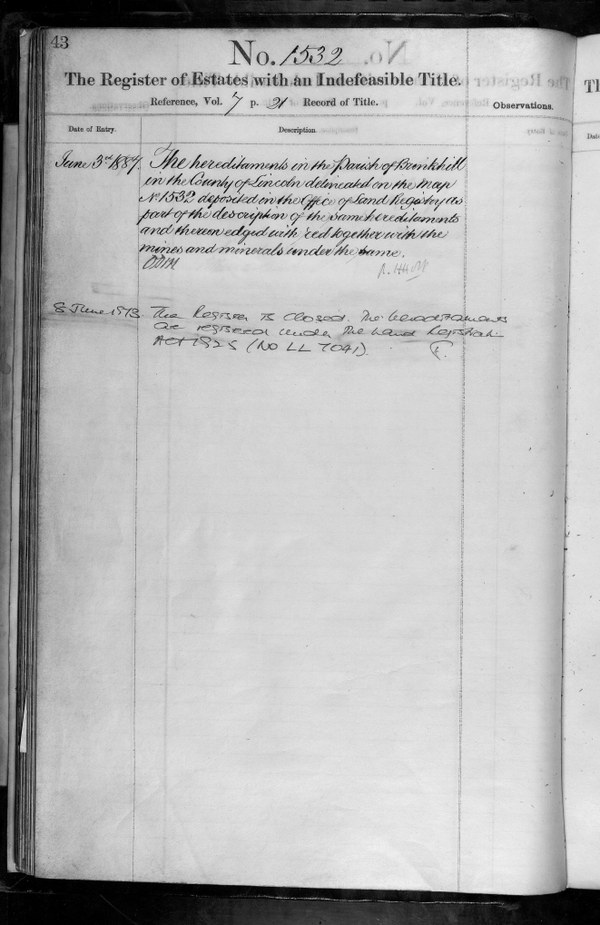 43
No. 1532
The Register of Estates with an Indefeasible Title.
Reference, Vol. 7 p. 21 Record of Title.
Observations.
Date of Entry.
Description.
June 3rd 1887.
The hereditaments in the Parish of Brinkhill
in the County of Lincoln delineated on the map
No 1532 deposited in the Office of Land Registry as
part of the description of the same hereditaments
and thereon edged with red together with the
mines and minerals under the same.
8 June 1973
The Register is closed. The hereditaments
are registered under the Land Registration
Act 1925 (No LL 7041).
Th
Date